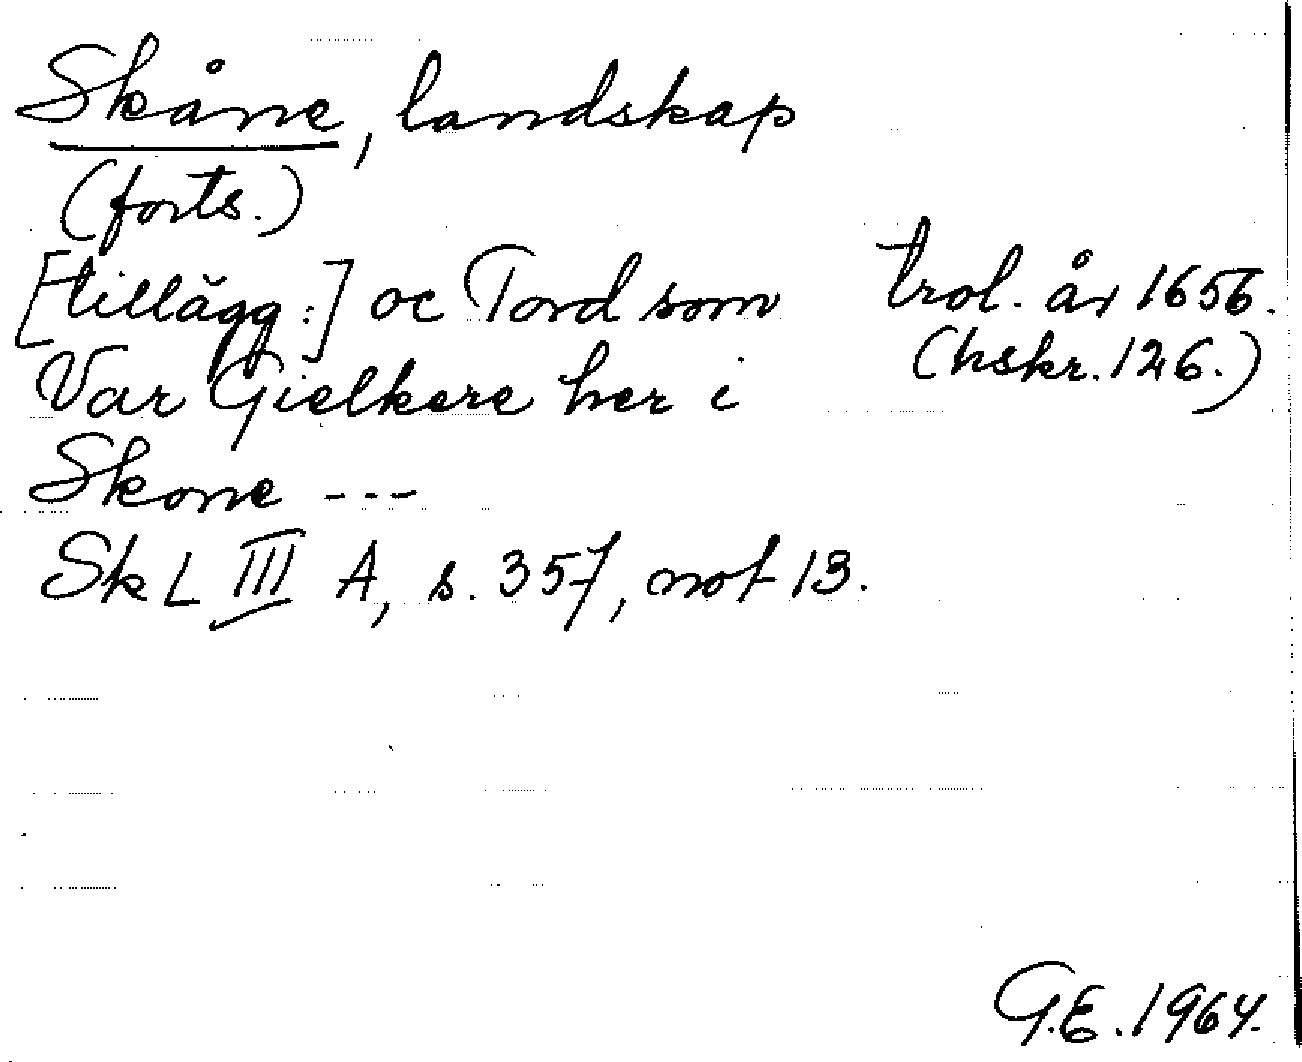 Skåne, landskap
(forts.)
[tillägg:] oc Tord som
Var Gielkere her i
Skone ---
Sk L III A, s. 357, not 13.
trol. år 1656.
(hskr. 126.)
G.E. 1964.